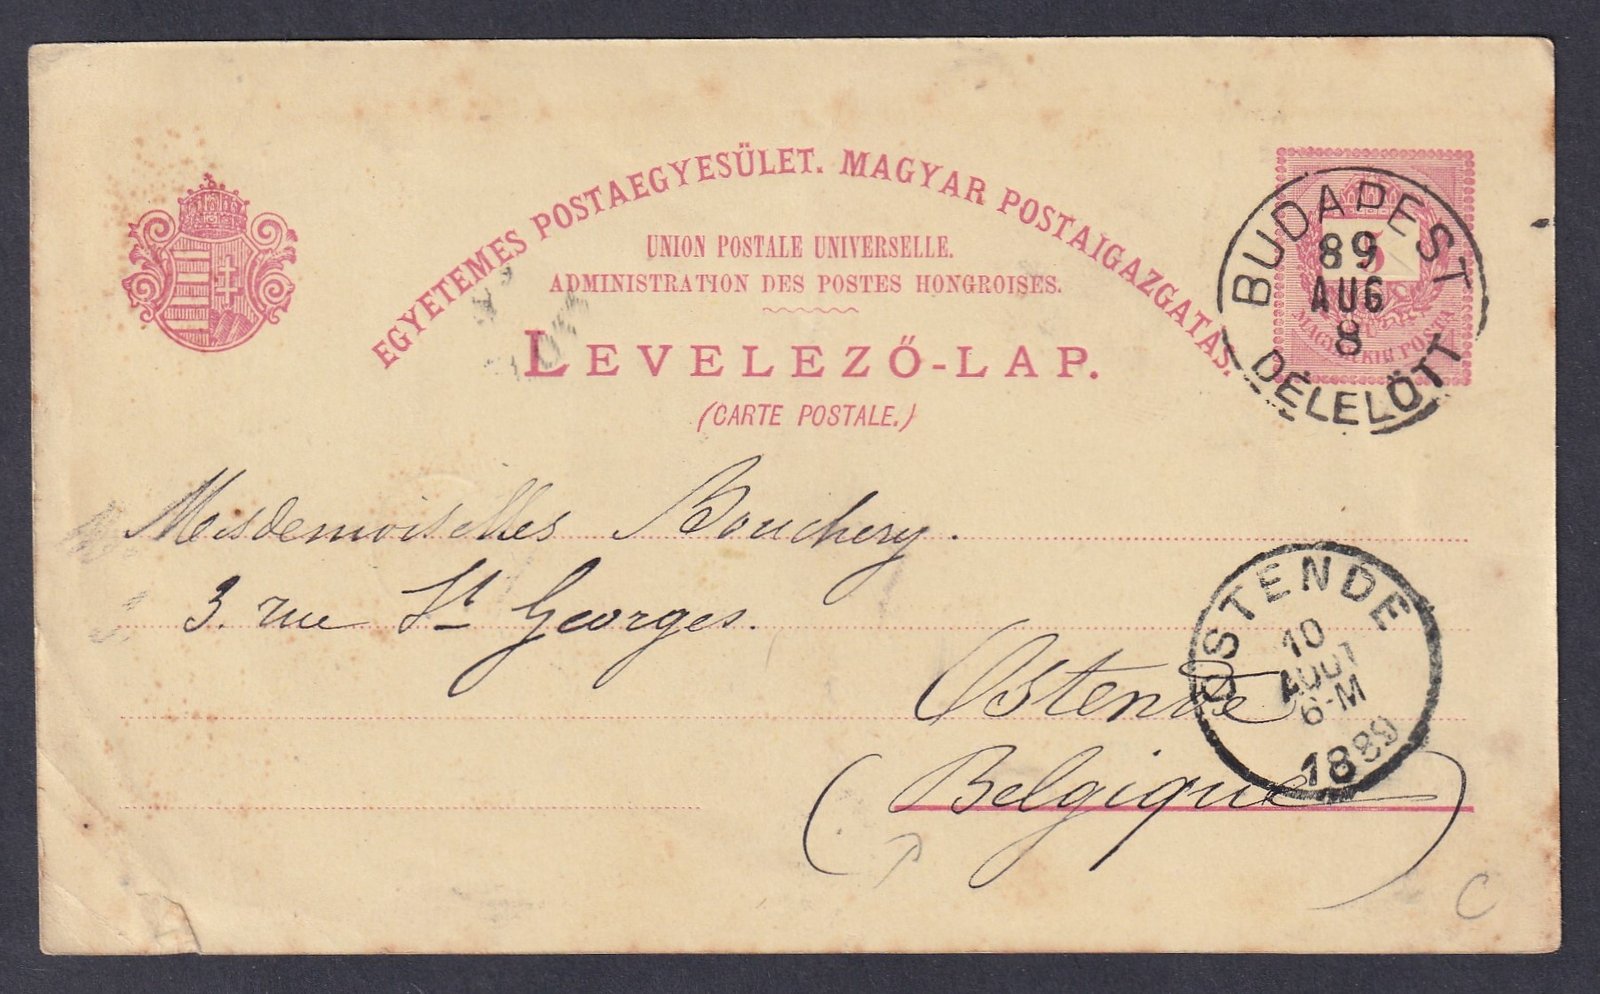 EGYETEMES POSTAEGYESÜLET. MAGYAR POSTAIGAZGATÁS.
UNION POSTALE UNIVERSELLE.
ADMINISTRATION DES POSTES HONGROISES.
LEVELEZŐ-LAP.
(CARTE POSTALE.)
5
MAGYAR KIR. POSTA
BUDAPEST
89
AUG
8
DÉLELŐTT
Mesdemoiselles Bouchery.
3. rue St Georges.
Ostende
(Belgique)
OSTENDE
10
AOUT
6-M
1889
C